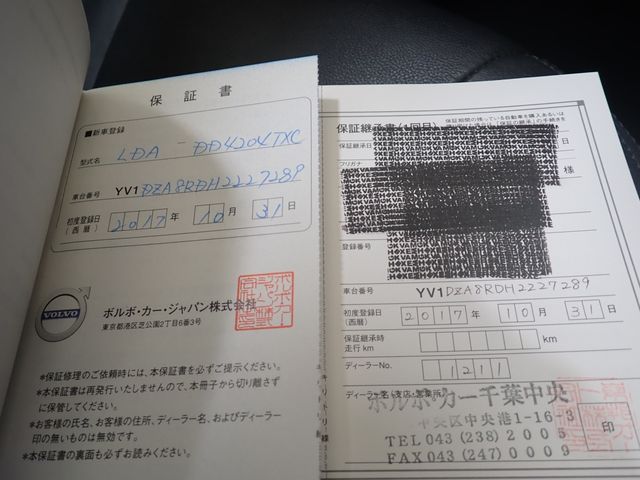 保証書
■新車登録
型式名 LDA - DD4204TXC
車台番号 YV1DZA8RDH2227289
初度登録日(西暦) 2017年 10月 31日
VOLVO
ボルボ・カー・ジャパン株式会社
東京都港区芝公園2丁目6番3号
*保証修理のご依頼時には、本保証書を必ずご提示ください。
*本保証書は再発行いたしませんので、本冊子から切り離さず
に保管してください。
*お客様の氏名、お客様の住所、ディーラー名、およびディーラー
印の無いものは無効です。
*本保証書の裏面も必ずお読みください。
キリトリ線
保証期間の残っている自動車を購入あるいは
保証継承書(1回目)
保証継承日
フリガナ
様
登録番号
車台番号 YV1DZA8RDH2227289
初度登録日(西暦) 2017年 10月 31日
保証継承時
走行km km
ディーラーNo. 1211
ディーラー名(支店・営業所)
ボルボ・カー千葉中央
中央区中央港1-16-3
TEL 043 (238) 2005
FAX 043 (247) 0009
印